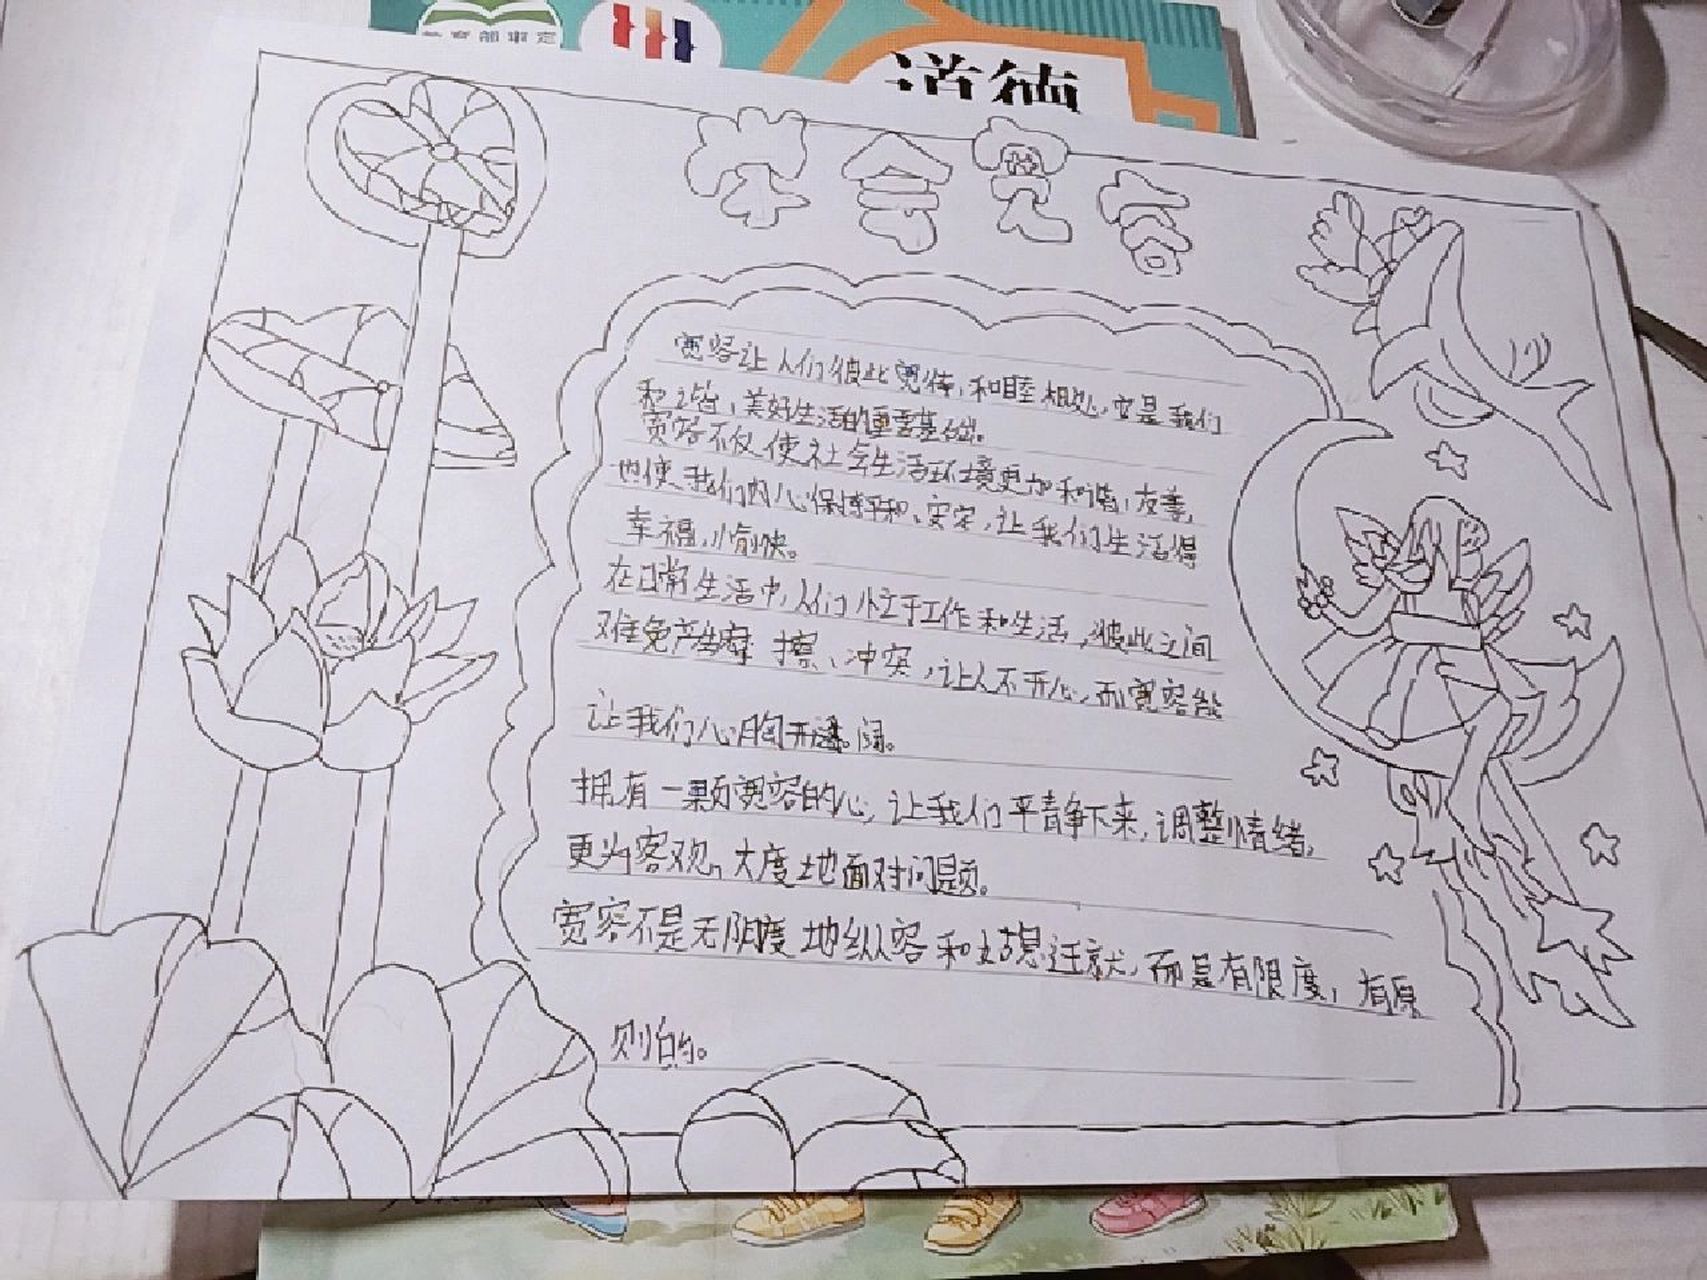 教育部审定
道德
学会宽容
宽容让人们彼此宽待,和睦相处,它是我们
和谐,美好生活的重要基础。
宽容不仅使社会生活环境更加和谐,友善,
也使我们内心保持平和、安定,让我们生活得
幸福,愉快。
在日常生活中,人们忙于工作和生活,彼此之间
难免产生摩擦、冲突,让人不开心,而宽容能
让我们心胸开阔。
拥有一颗宽容的心,让我们平静下来,调整情绪,
更为客观、大度地面对问题。
宽容不是无限度地纵容和姑息迁就,而是有限度,有原
则的。